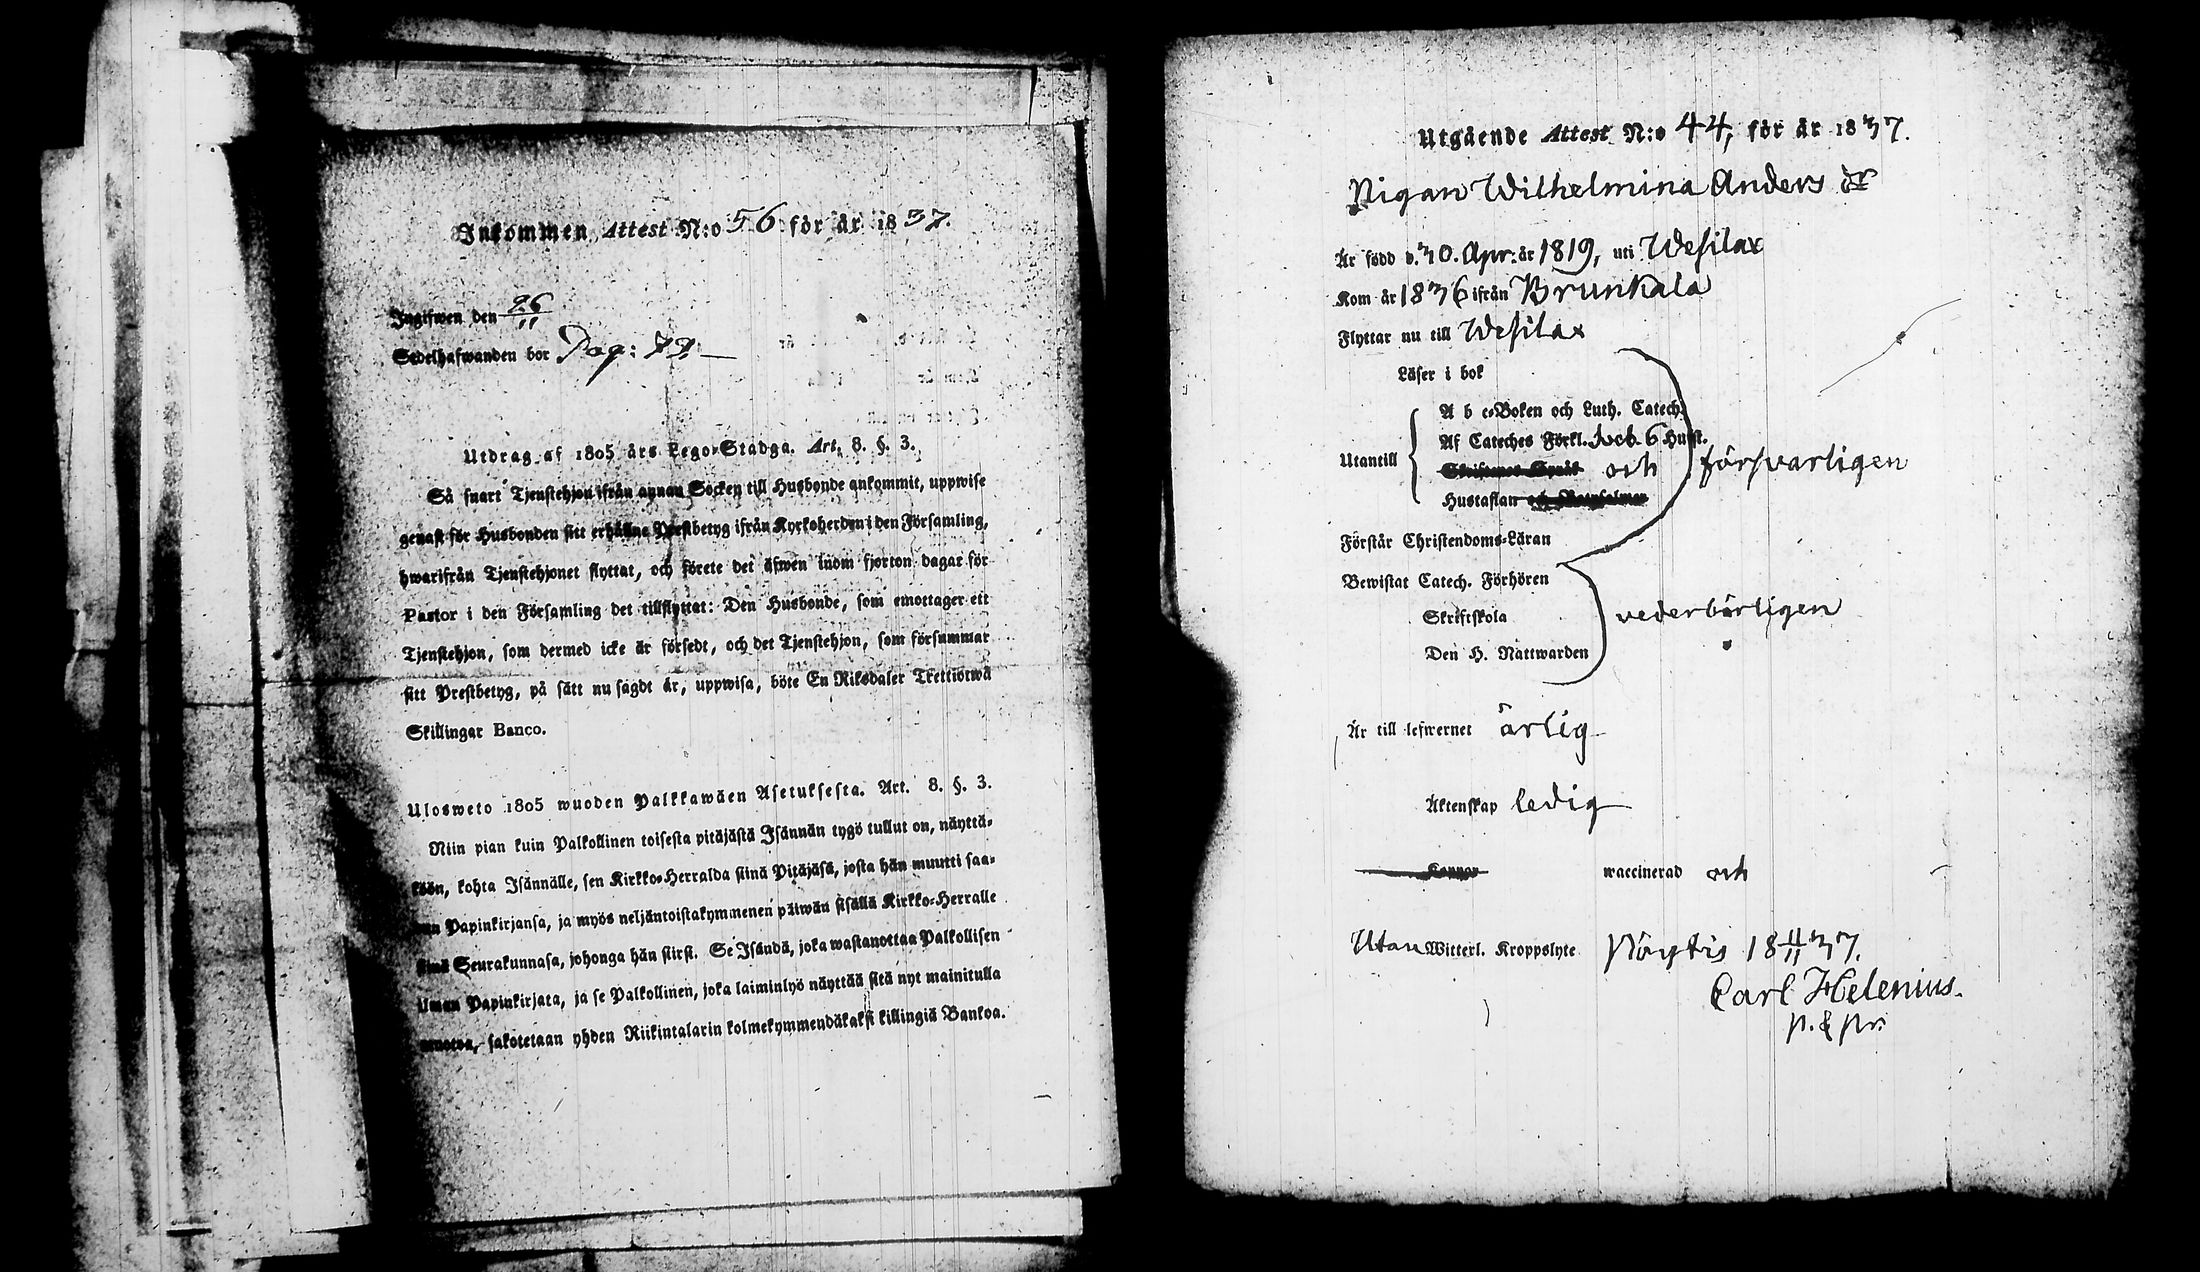 Inkommen Attest N:o 56 för år 1837.
Ingifwen den 26/11
Sedelhafwanden bor Pag: 79.
Utdrag af 1805 års Lego-Stadga. Art. 8. §. 3.
Så snart Tjenstehjon ifrån annan Socken till Husbonde ankommit, uppwise
genast för Husbonden sitt erhållne Prestbetyg ifrån Kyrkoherden i den Församling,
hwarifrån Tjenstehjonet flyttat, och förete det äfwen inom fjorton dagar för
Pastor i den Församling det tillflyttat: Den Husbonde, som emottager ett
Tjenstehjon, som dermed icke är försedt, och det Tjenstehjon, som försummar
sitt Prestbetyg, på sätt nu sagdt är, uppwisa, böte En Riksdaler Trettiotwå
Skillingar Banco.
Ulosweto 1805 wuoden Palkkawäen Asetuksesta. Art. 8. §. 3.
Niin pian kuin Palkollinen toisesta pitäjästä Isännän tygö tullut on, näyttä-
köön, kohta Isännälle, sen Kirkko-Herralda siinä Pitäjäsä, josta hän muutti saa-
dun Papinkirjansa, ja myös neljäntoistakymmenen päiwän sisällä Kirkko-Herralle
siinä Seurakunnasa, johonga hän siirsi. Se Isändä, joka wastanottaa Palkollisen
ilman Papinkirjata, ja se Palkollinen, joka laiminlyö näyttää sitä nyt mainitulla
muotoa, sakotetaan yhden Riikintalarin kolmekymmendäkaksi killingiä Bankoa.
Utgående Attest N:o 44, för år 1837.
Pigan Wilhelmina Anders dr
Är född d. 30. Apr. år 1819, uti Wesilax
Kom år 1836 ifrån Brunkala
Flyttar nu till Wesilax
Läser i bok
A b c-Boken och Luth. Catech.
Utantill Af Cateches Förkl. och 6 Hufst. försvarligen
Skriftenes Språk och
Hustaflan och Botpsalmer
Förstår Christendoms-Läran
Bewistat Catech. Förhören
Skriftskola vederbörligen
Den H. Nattwarden
Är till lefwernet ärlig
Äktenskap ledig
Koppor waccinerad och
Utan Witterl. Kroppslyte Pöytis 18 11/11 37.
Carl Helenius.